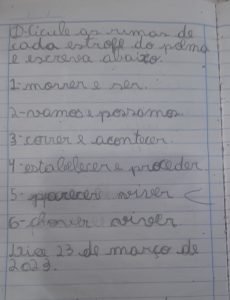 1) Circule as rimas de
cada estrofe do poema
e escreva abaixo.
1-morrer e ser.
2-vamos e possamos.
3-correr e acontecer.
4-estabelecer e proceder.
5-parecer viver
6-chover viver
Dia 23 de março de
2023.